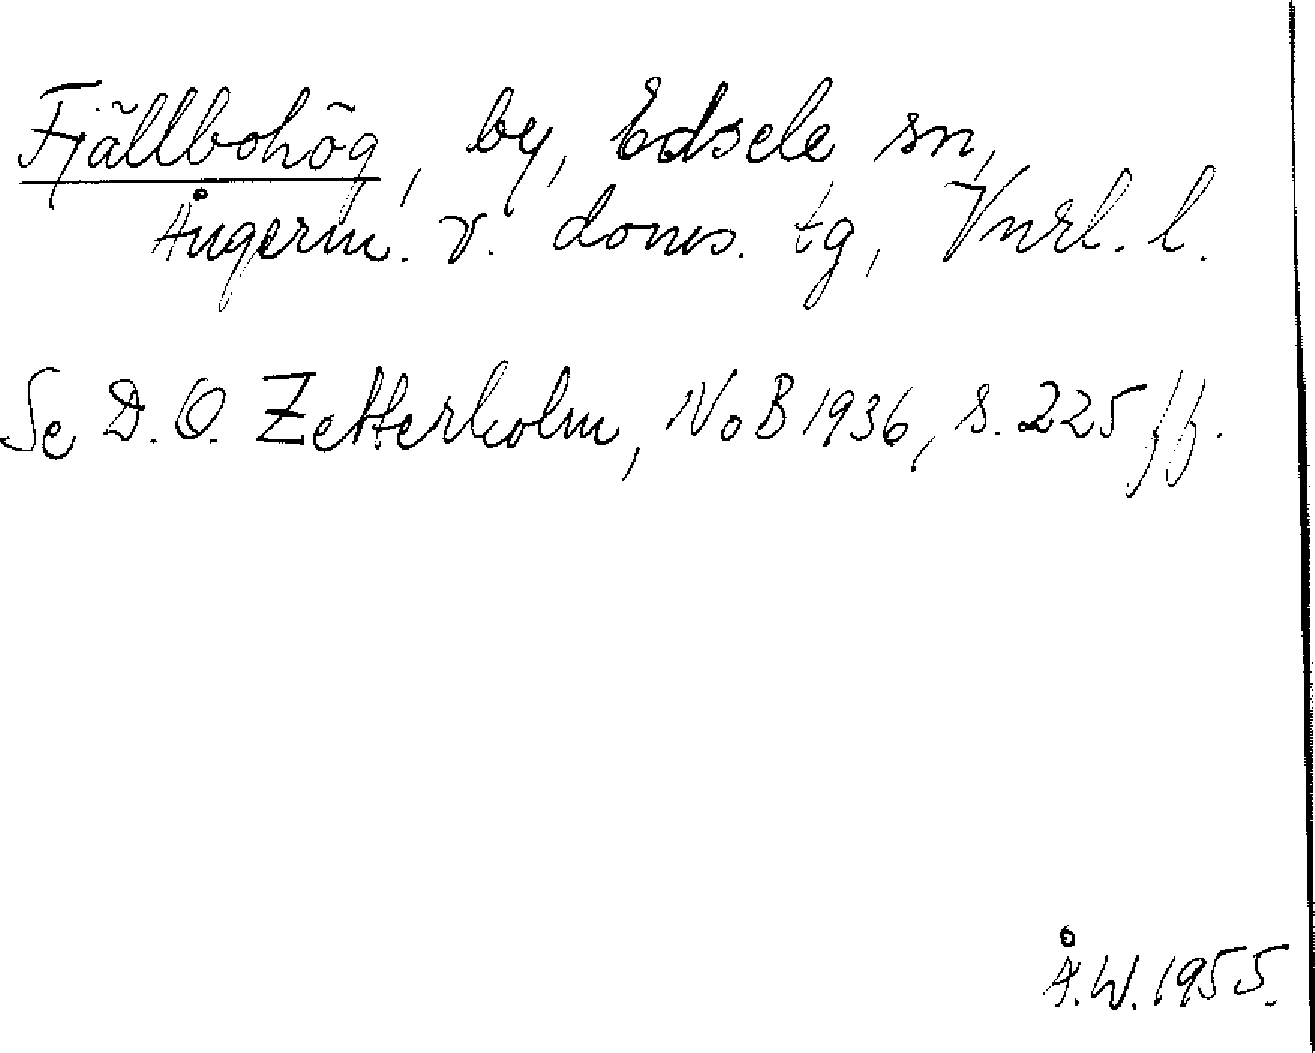 Fjällbohög, by, Edsele sn,
Ångerm. v. doms. tg, Vnrl. l.
Se D. O. Zetterholm, NoB 1936, s. 225 ff.
Å. W. 1955.